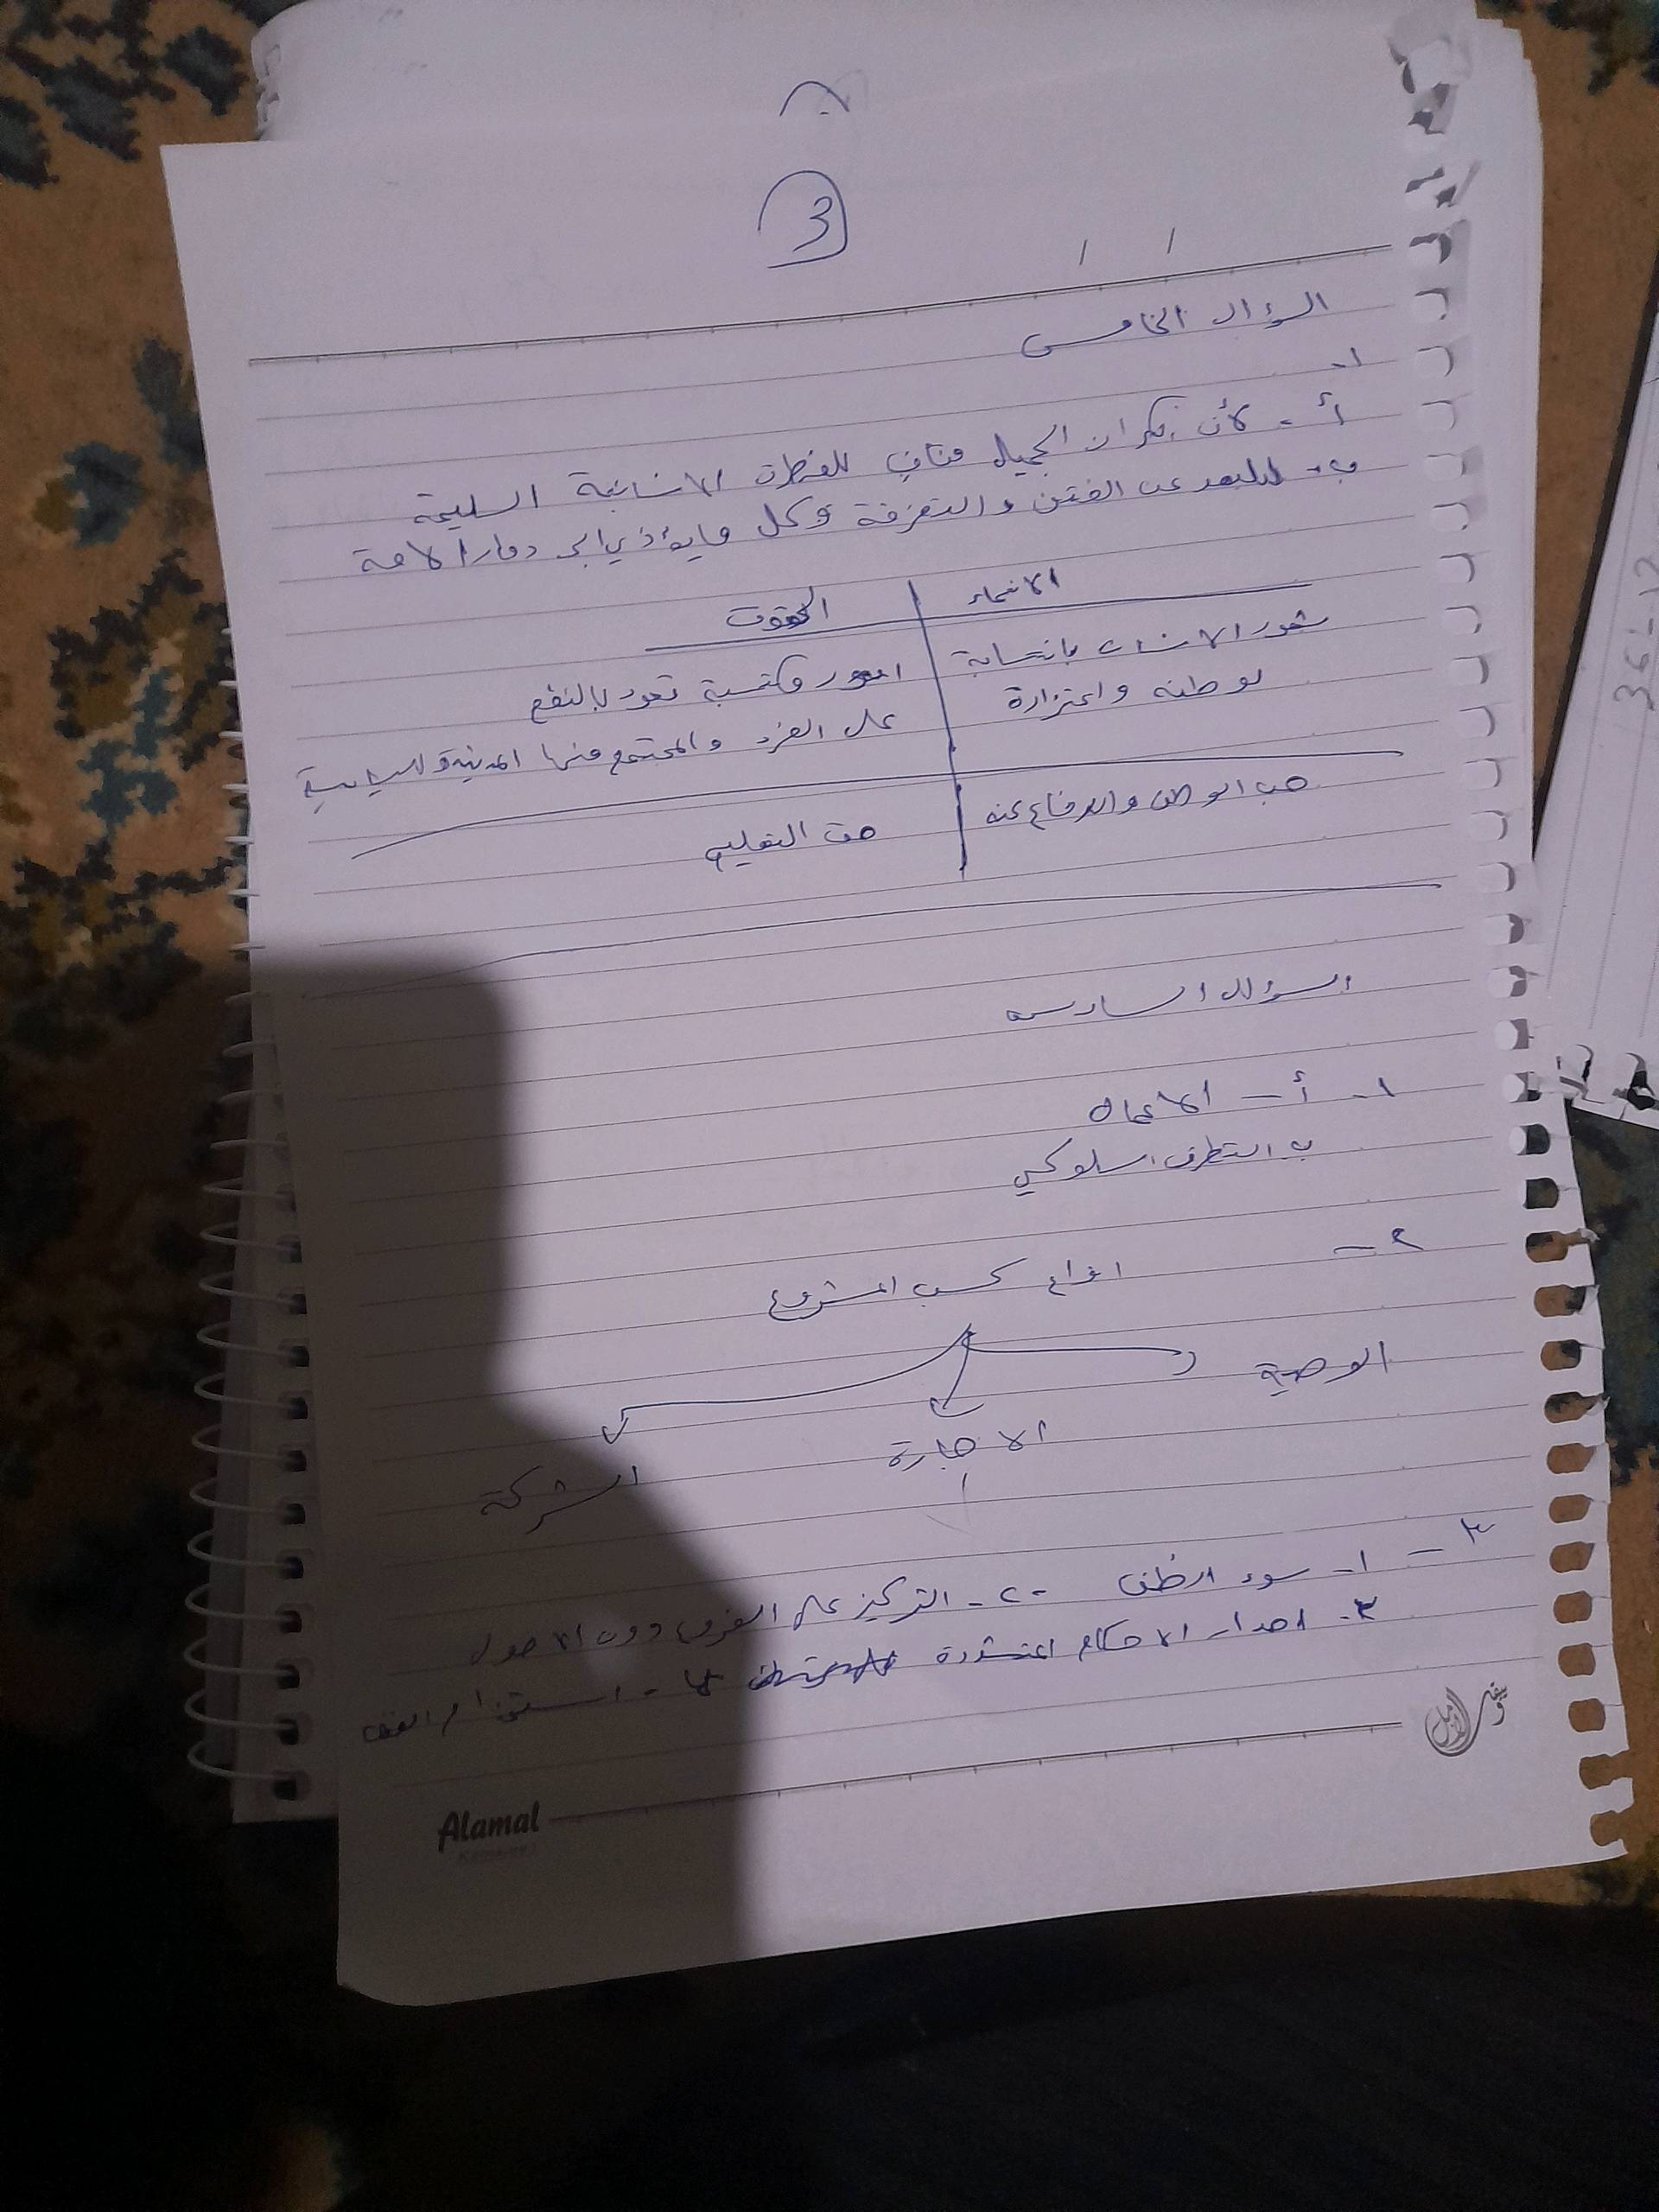 3
السؤال الخامس
١-
أ - لأن نكران الجميل مناف للفطرة الانسانية السليمة
ب- للبعد عن الفتن والتفرقة وكل ما يؤدي الى دمار الامة
الانتماء | الحقوق
شعور الانسان بانتسابة | امور مكتسبة تعود بالنفع
لوطنه واعتزازة | على الفرد والمجتمع منها المدنية والسياسية
حب الوطن والدفاع عنه | حق التعليم
السؤال السادس
١- أ - الاعمال
ب التطرف السلوكي
٢ - انواع كسب المشروع
الوصية
الاجارة
الشركة
٣ - ١- سوء الظن ٢- التركيز على الفروع دون الاصول
٣- اصدار الاحكام المتشددة ٤ - استخدام العنف
Alamal
36-12